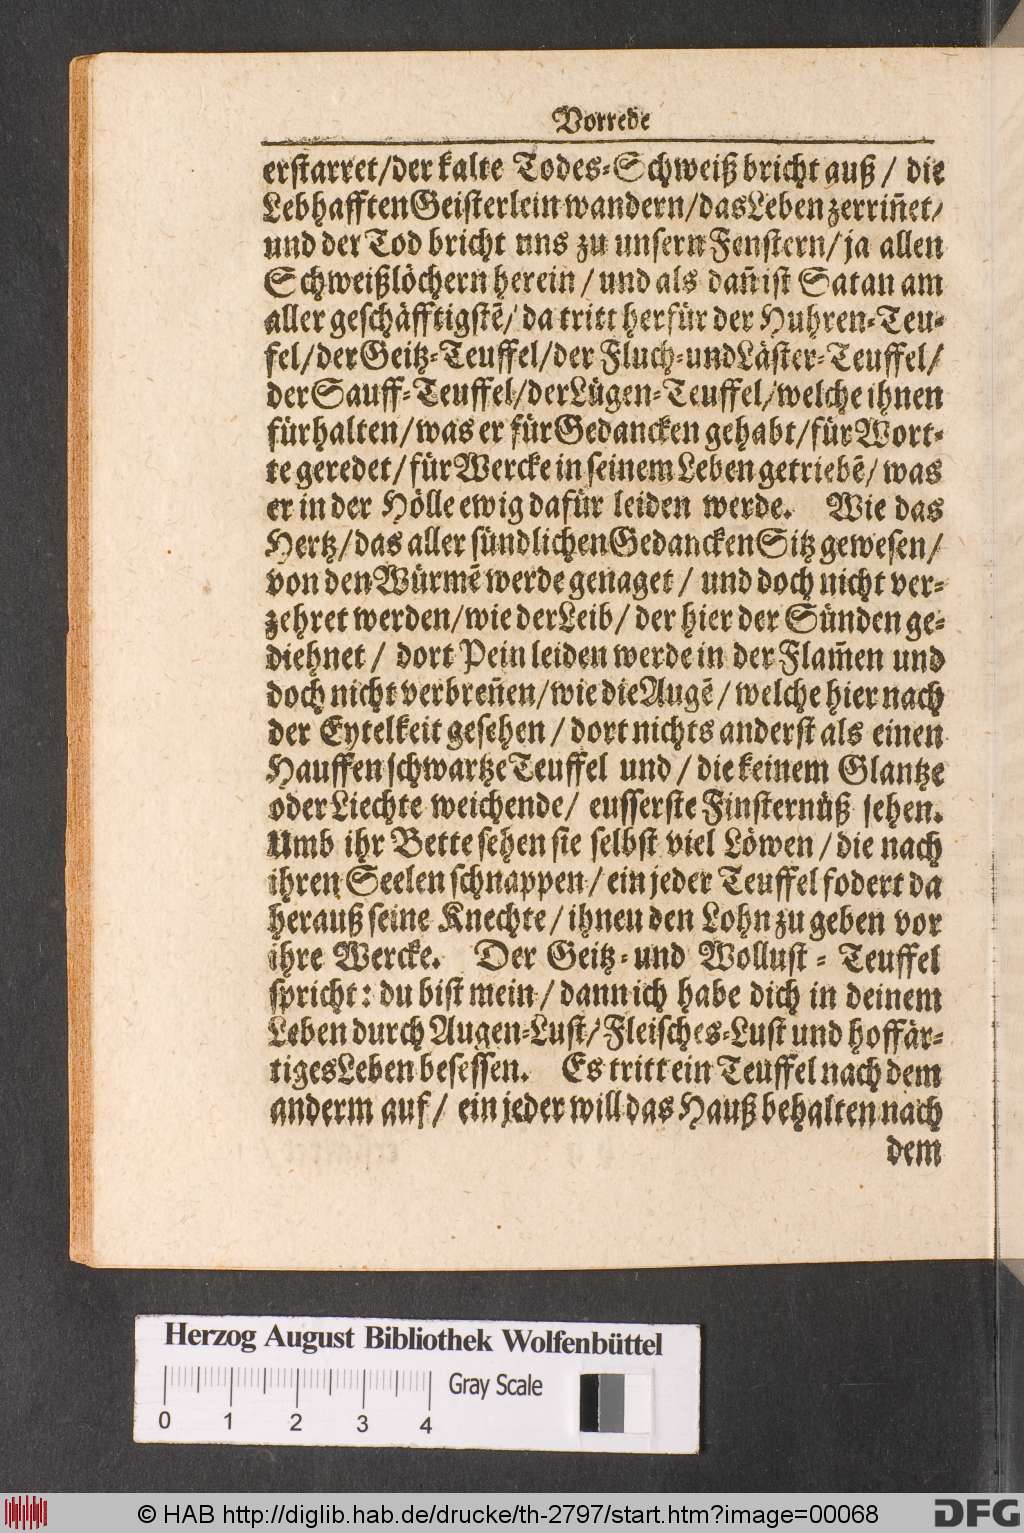 Vorrede
erstarret/der kalte Todes-Schweiß bricht auß / die
Lebhafften Geisterlein wandern/das Leben zerriñet/
und der Tod bricht uns zu unsern Fenstern/ ja allen
Schweißlöchern herein / und als dañ ist Satan am
aller geschäfftigstē/ da tritt herfür der Huhren-Teu-
fel/der Geitz-Teuffel/der Fluch-und Läster-Teuffel/
der Sauff-Teuffel/der Lügen-Teuffel/welche ihnen
fürhalten/was er für Gedancken gehabt/für Wort-
te geredet/für Wercke in seinem Leben getriebē/ was
er in der Hölle ewig dafür leiden werde. Wie das
Hertz/das aller sündlichen Gedancken Sitz gewesen/
von den Würmē werde genaget / und doch nicht ver-
zehret werden/wie der Leib/ der hier der Sünden ge-
diehnet / dort Pein leiden werde in der Flam̃en und
doch nicht verbreñen/wie die Augē / welche hier nach
der Eytelkeit gesehen / dort nichts anderst als einen
Hauffen schwartze Teuffel und / die keinem Glantze
oder Liechte weichende/ eusserste Finsternüß sehen.
Umb ihr Bette sehen sie selbst viel Löwen / die nach
ihren Seelen schnappen / ein jeder Teuffel fodert da
herauß seine Knechte / ihnen den Lohn zu geben vor
ihre Wercke. Der Geitz-und Wollust-Teuffel
spricht: du bist mein / dann ich habe dich in deinem
Leben durch Augen-Lust/Fleisches-Lust und hoffär-
tiges Leben besessen. Es tritt ein Teuffel nach dem
anderm auf / ein jeder will das Hauß behalten nach
dem
Herzog August Bibliothek Wolfenbüttel
Gray Scale
0 1 2 3 4
© HAB http://diglib.hab.de/drucke/th-2797/start.htm?image=00068
DFG